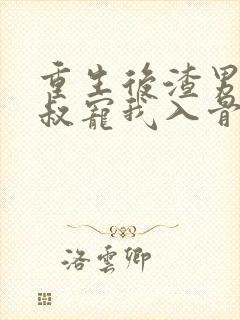 重生後渣男
叔寵我入骨
洛雲卿